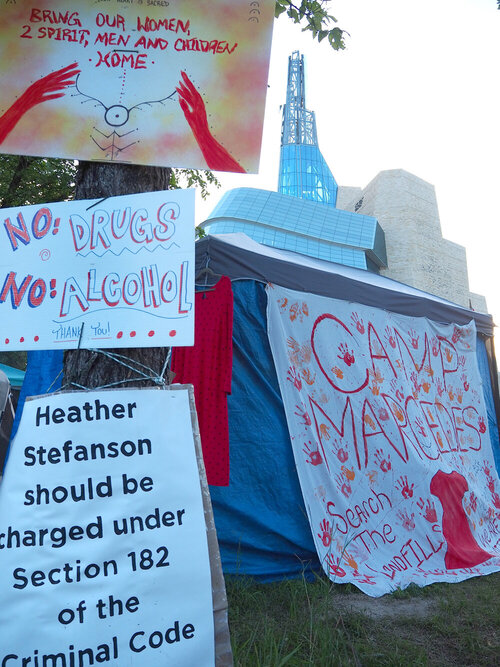 HEART IS SACRED
BRING OUR WOMEN,
2 SPIRIT, MEN AND CHILDREN
·HOME·
NO: DRUGS
NO: ALCOHOL
THANK YOU!
Heather
Stefanson
should be
charged under
Section 182
of the
Criminal Code
CAMP
MARCEDES
Search
The
LANDFILLS